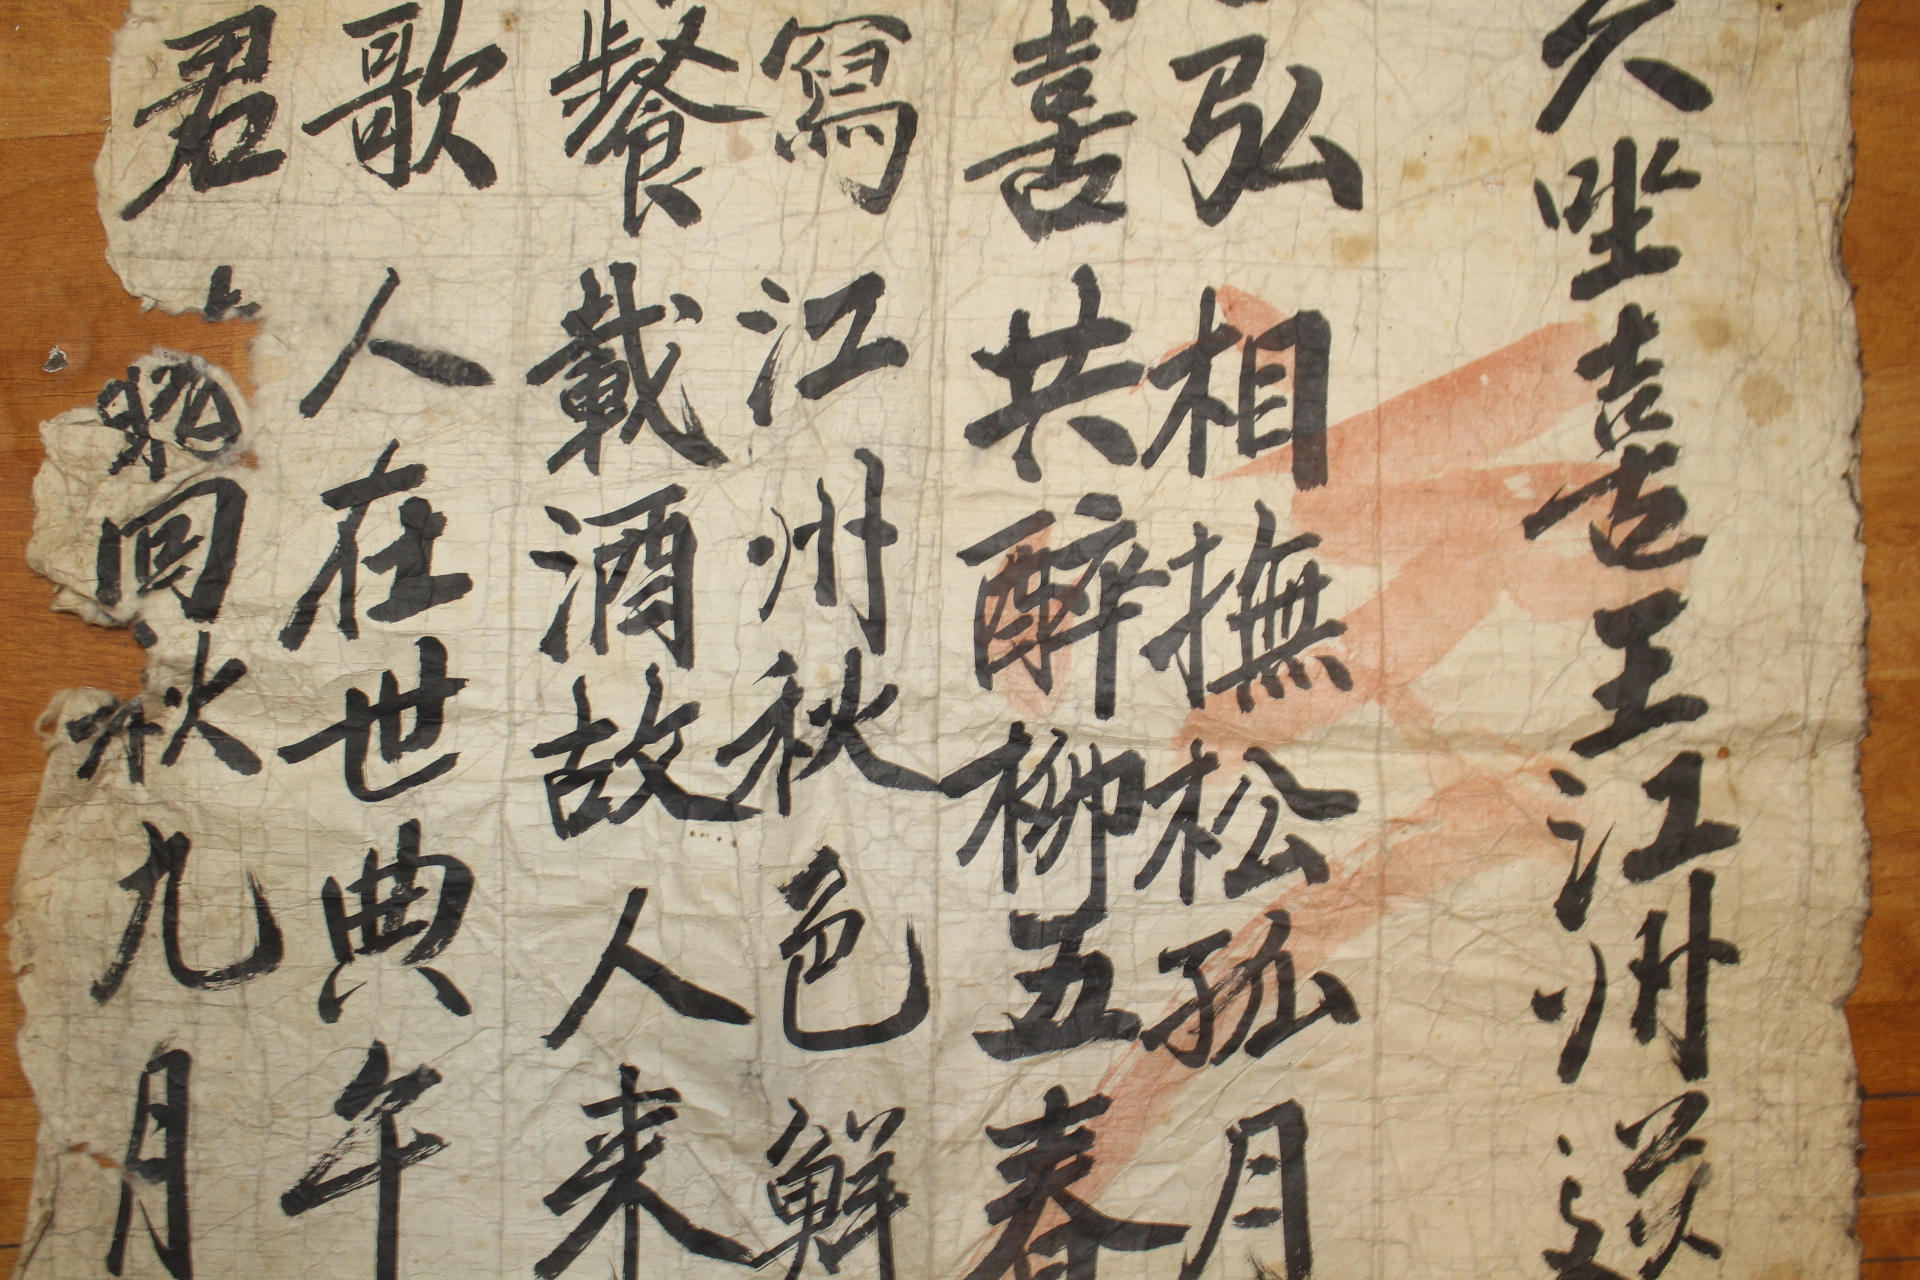 久坐喜王江州送
弘相撫松孤月
喜共醉柳五春
寫江州秋色鮮
餐載酒故人来
歌人在世典午
君 回秋九月